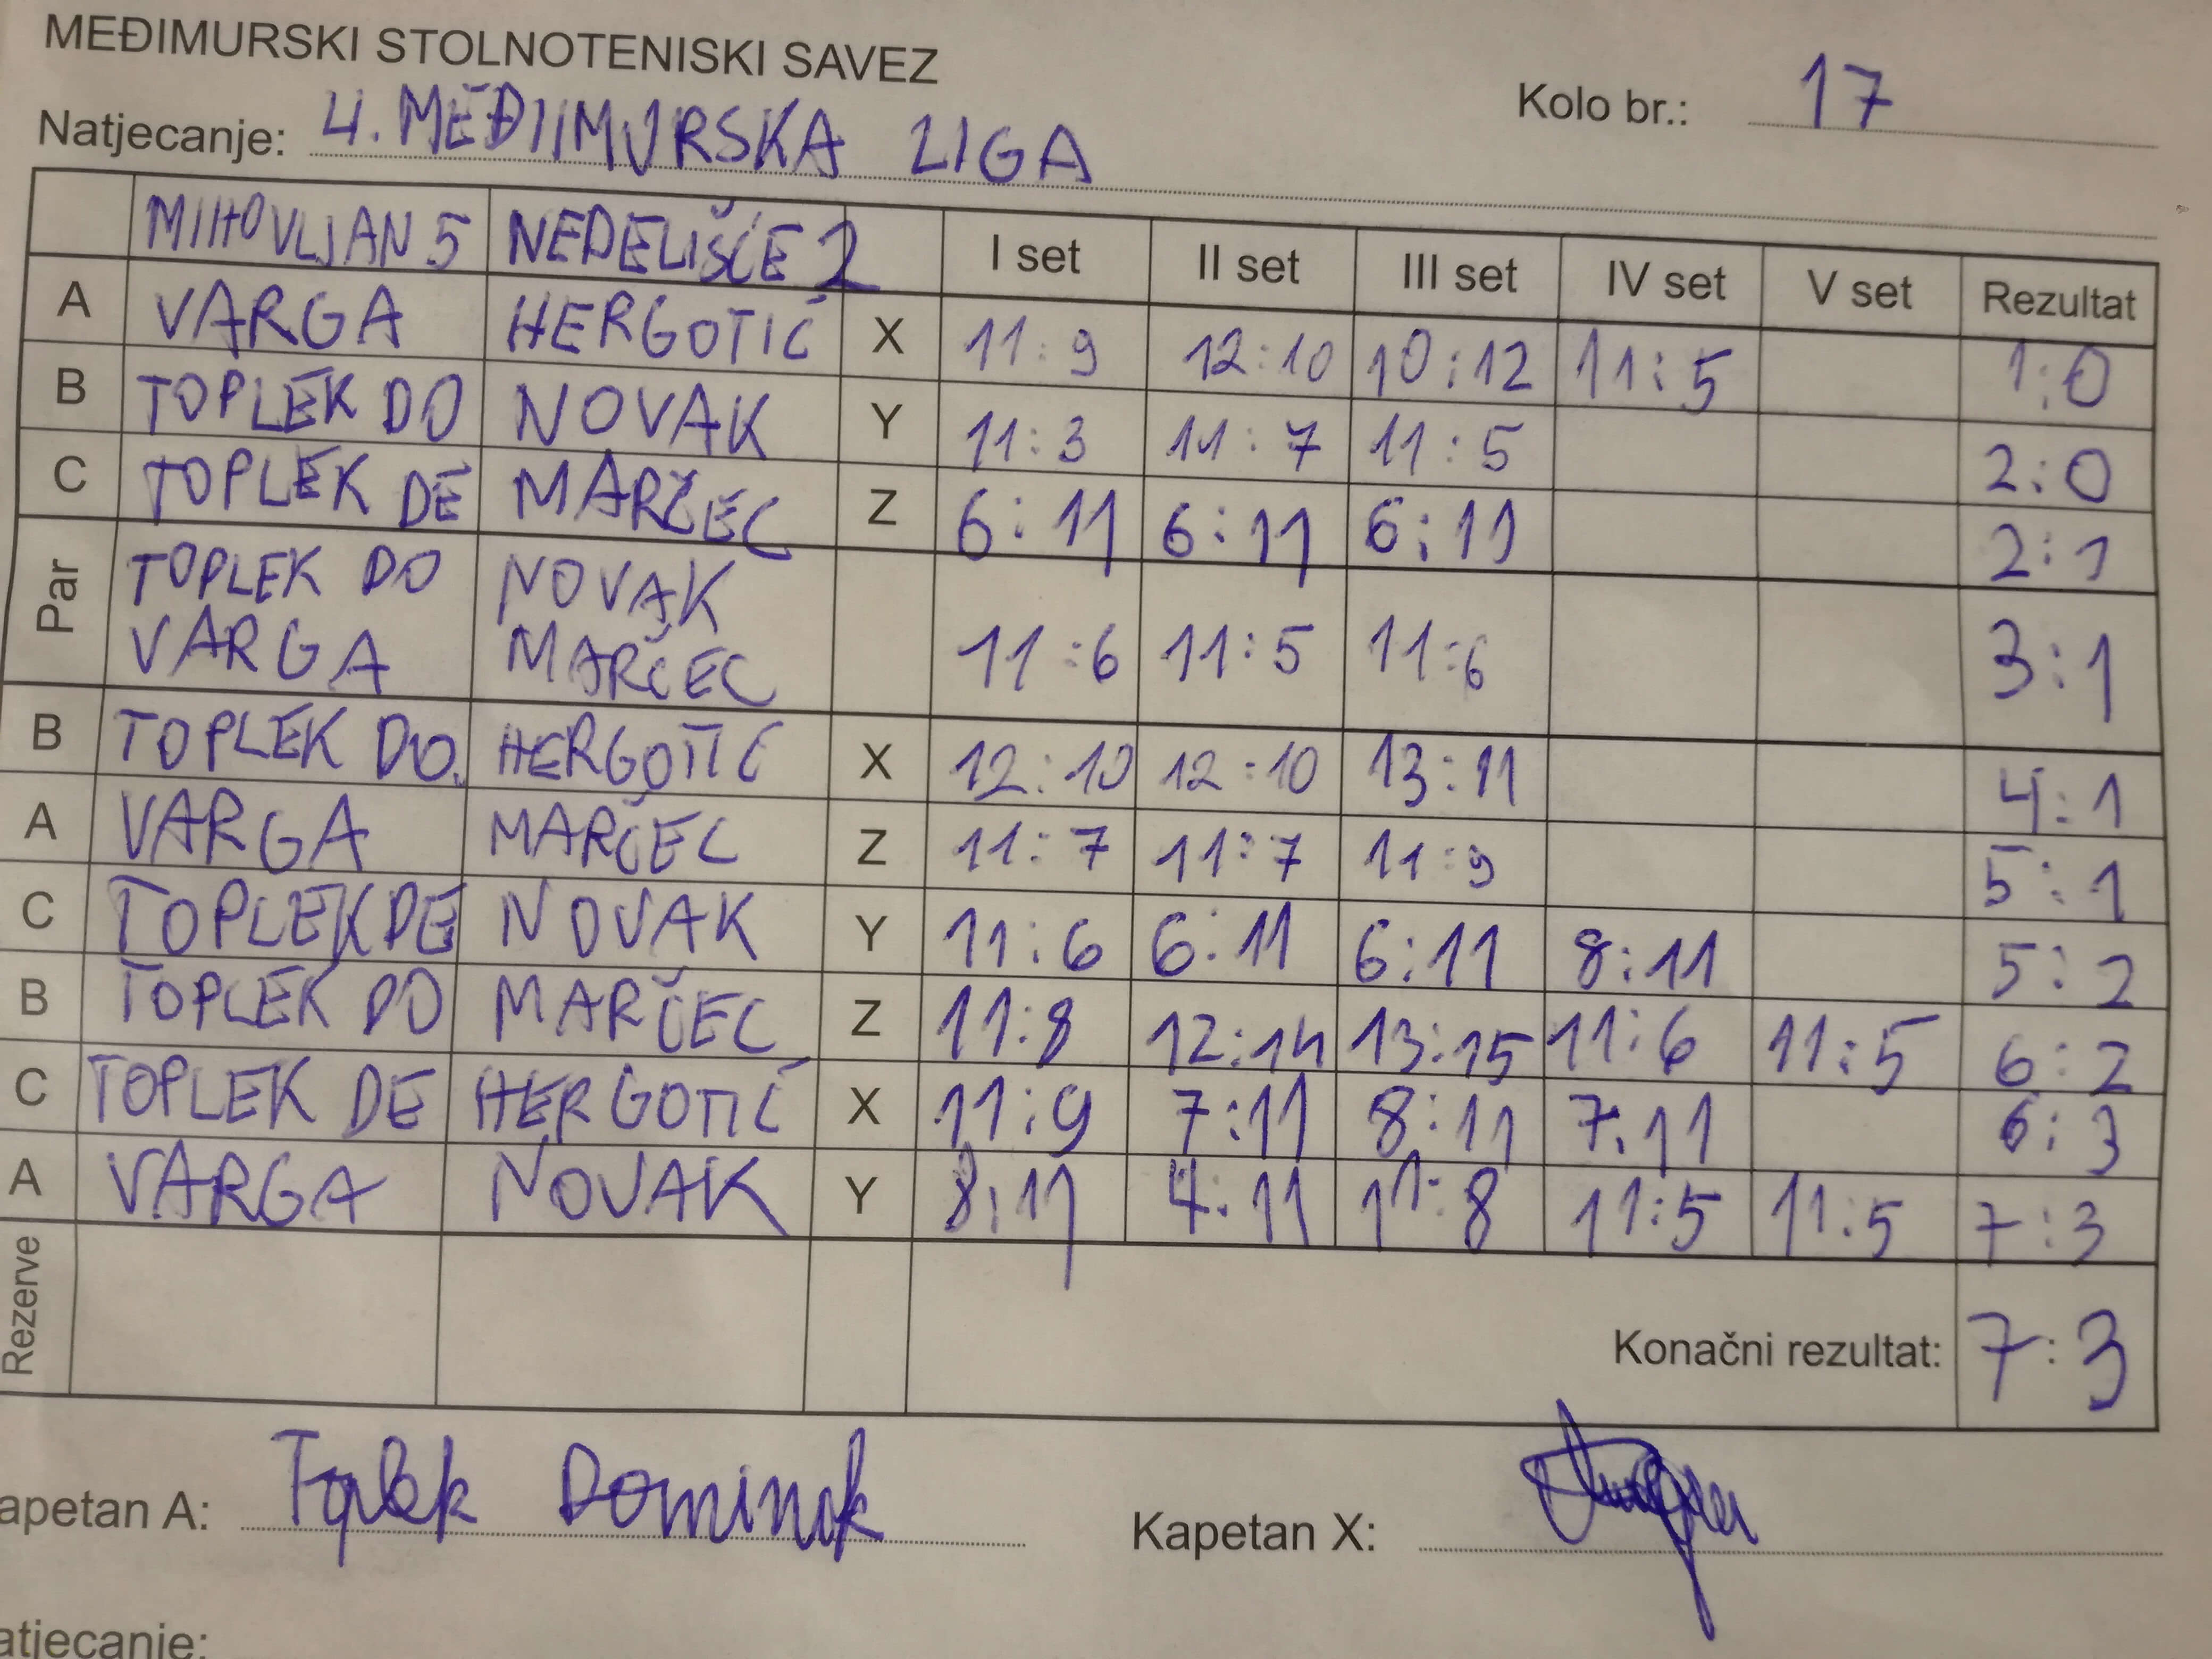 MEĐIMURSKI STOLNOTENISKI SAVEZ
Kolo br.: 17
Natjecanje: 4. MEĐIIMURSKA LIGA
MIHOVLJAN 5 NEDELIŠĆE 2 I set II set III set IV set V set Rezultat
A VARGA HERGOTIĆ X 11:9 12:10 10:12 11:5 1:0
B TOPLEK DO NOVAK Y 11:3 11:7 11:5 2:0
C TOPLEK DE MARČEC Z 6:11 6:11 6:11 2:1
Par TOPLEK DO NOVAK
VARGA MARČEC 11:6 11:5 11:6 3:1
B TOPLEK DO. HERGOTIĆ X 12:10 12:10 13:11 4:1
A VARGA MARČEC Z 11:7 11:7 11:9 5:1
C TOPLEK DE NOVAK Y 11:6 6:11 6:11 8:11 5:2
B TOPLEK DO MARČEC Z 11:8 12:14 13:15 11:6 11:5 6:2
C TOPLEK DE HERGOTIĆ X 11:9 7:11 8:11 7:11 6:3
A VARGA NOVAK Y 8:11 4:11 11:8 11:5 11:5 7:3
Rezerve Konačni rezultat: 7:3
apetan A: Toplek Dominik Kapetan X:
atjecanje: